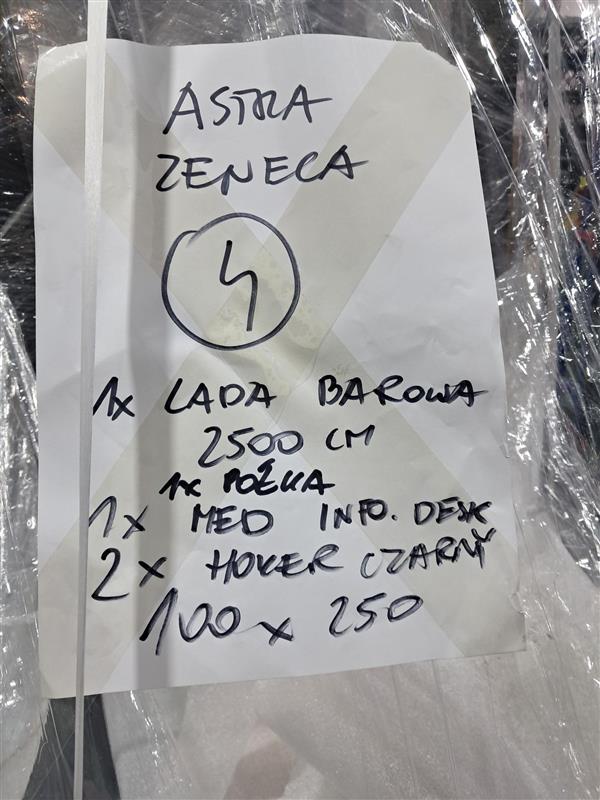 ASTRA
ZENECA
4
1x LADA BAROWA
2500 CM
1x PÓŁKA
1x MED INFO. DESK
2x HOKER CZARNY
100 x 250